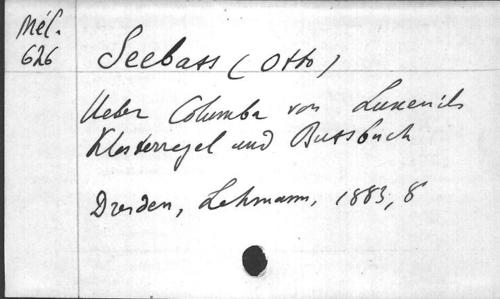 Mél.
626
Seebass (Otto)
Ueber Columba von Luxeuils
Klosterregel und Bussbuch
Dresden, Lehmann, 1883, 8